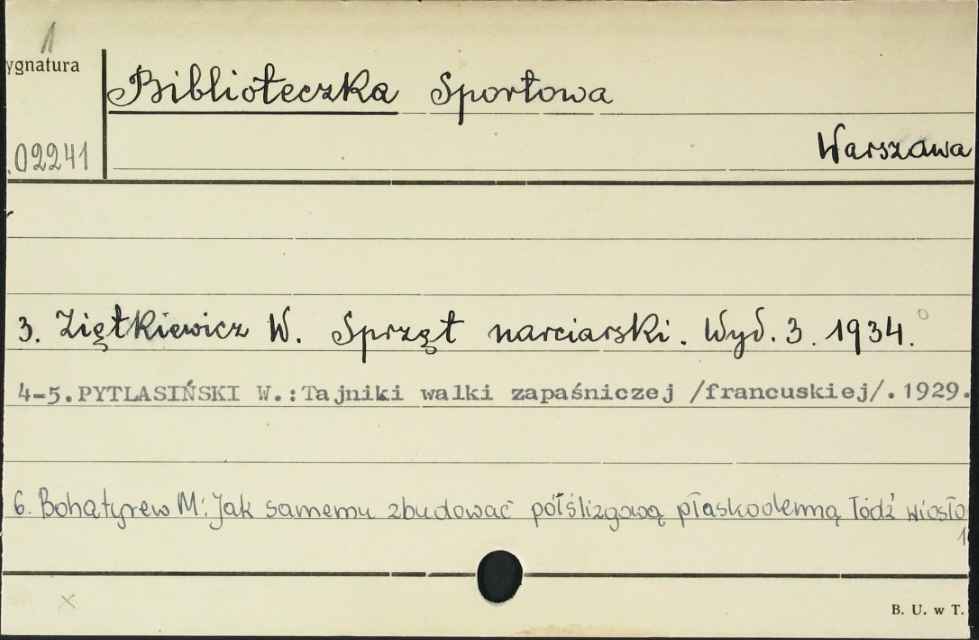 1
ygnatura
Biblioteczka Sportowa
02241
Warszawa
3. Ziętkiewicz W. Sprzęt narciarski. Wyd. 3. 1934.
4-5. PYTLASIŃSKI W.: Tajniki walki zapaśniczej /francuskiej/. 1929.
6. Bohatyrew M: Jak samemu zbudować półślizgową płaskodenną łódź wiosło
1
B. U. w T.